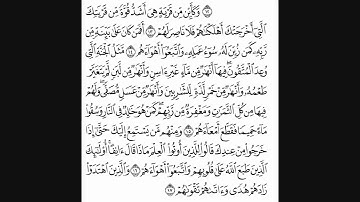 ١٢ وَكَأَيِّن مِّن قَرْيَةٍ هِىَ أَشَدُّ قُوَّةً مِّن قَرْيَتِكَ
ٱلَّتِىٓ أَخْرَجَتْكَ أَهْلَكْنَٰهُمْ فَلَا نَاصِرَ لَهُمْ ١٣ أَفَمَن كَانَ عَلَىٰ بَيِّنَةٍ مِّن
رَّبِّهِۦ كَمَن زُيِّنَ لَهُۥ سُوٓءُ عَمَلِهِۦ وَٱتَّبَعُوٓا۟ أَهْوَآءَهُم ١٤ مَّثَلُ ٱلْجَنَّةِ ٱلَّتِى
وُعِدَ ٱلْمُتَّقُونَ فِيهَآ أَنْهَٰرٌ مِّن مَّآءٍ غَيْرِ ءَاسِنٍ وَأَنْهَٰرٌ مِّن لَّبَنٍ لَّمْ يَتَغَيَّرْ
طَعْمُهُۥ وَأَنْهَٰرٌ مِّنْ خَمْرٍ لَّذَّةٍ لِّلشَّٰرِبِينَ وَأَنْهَٰرٌ مِّنْ عَسَلٍ مُّصَفًّى وَلَهُمْ
فِيهَا مِن كُلِّ ٱلثَّمَرَٰتِ وَمَغْفِرَةٌ مِّن رَّبِّهِمْ كَمَنْ هُوَ خَٰلِدٌ فِى ٱلنَّارِ وَسُقُوا۟
مَآءً حَمِيمًا فَقَطَّعَ أَمْعَآءَهُمْ ١٥ وَمِنْهُم مَّن يَسْتَمِعُ إِلَيْكَ حَتَّىٰٓ إِذَا
خَرَجُوا۟ مِنْ عِندِكَ قَالُوا۟ لِلَّذِينَ أُوتُوا۟ ٱلْعِلْمَ مَاذَا قَالَ ءَانِفًا أُو۟لَٰٓئِكَ
ٱلَّذِينَ طَبَعَ ٱللَّهُ عَلَىٰ قُلُوبِهِمْ وَٱتَّبَعُوٓا۟ أَهْوَآءَهُمْ ١٦ وَٱلَّذِينَ ٱهْتَدَوْا۟
زَادَهُمْ هُدًى وَءَاتَىٰهُمْ تَقْوَىٰهُمْ ١٧